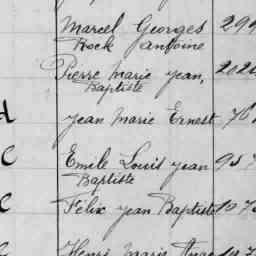 Marcel Georges 299
Rock Antoine
Pierre Marie Jean, 202
Baptiste
d Jean Marie Ernest 76
C Emile Louis Jean 957
Baptiste
C Félix Jean Baptiste 107
Henri Marie